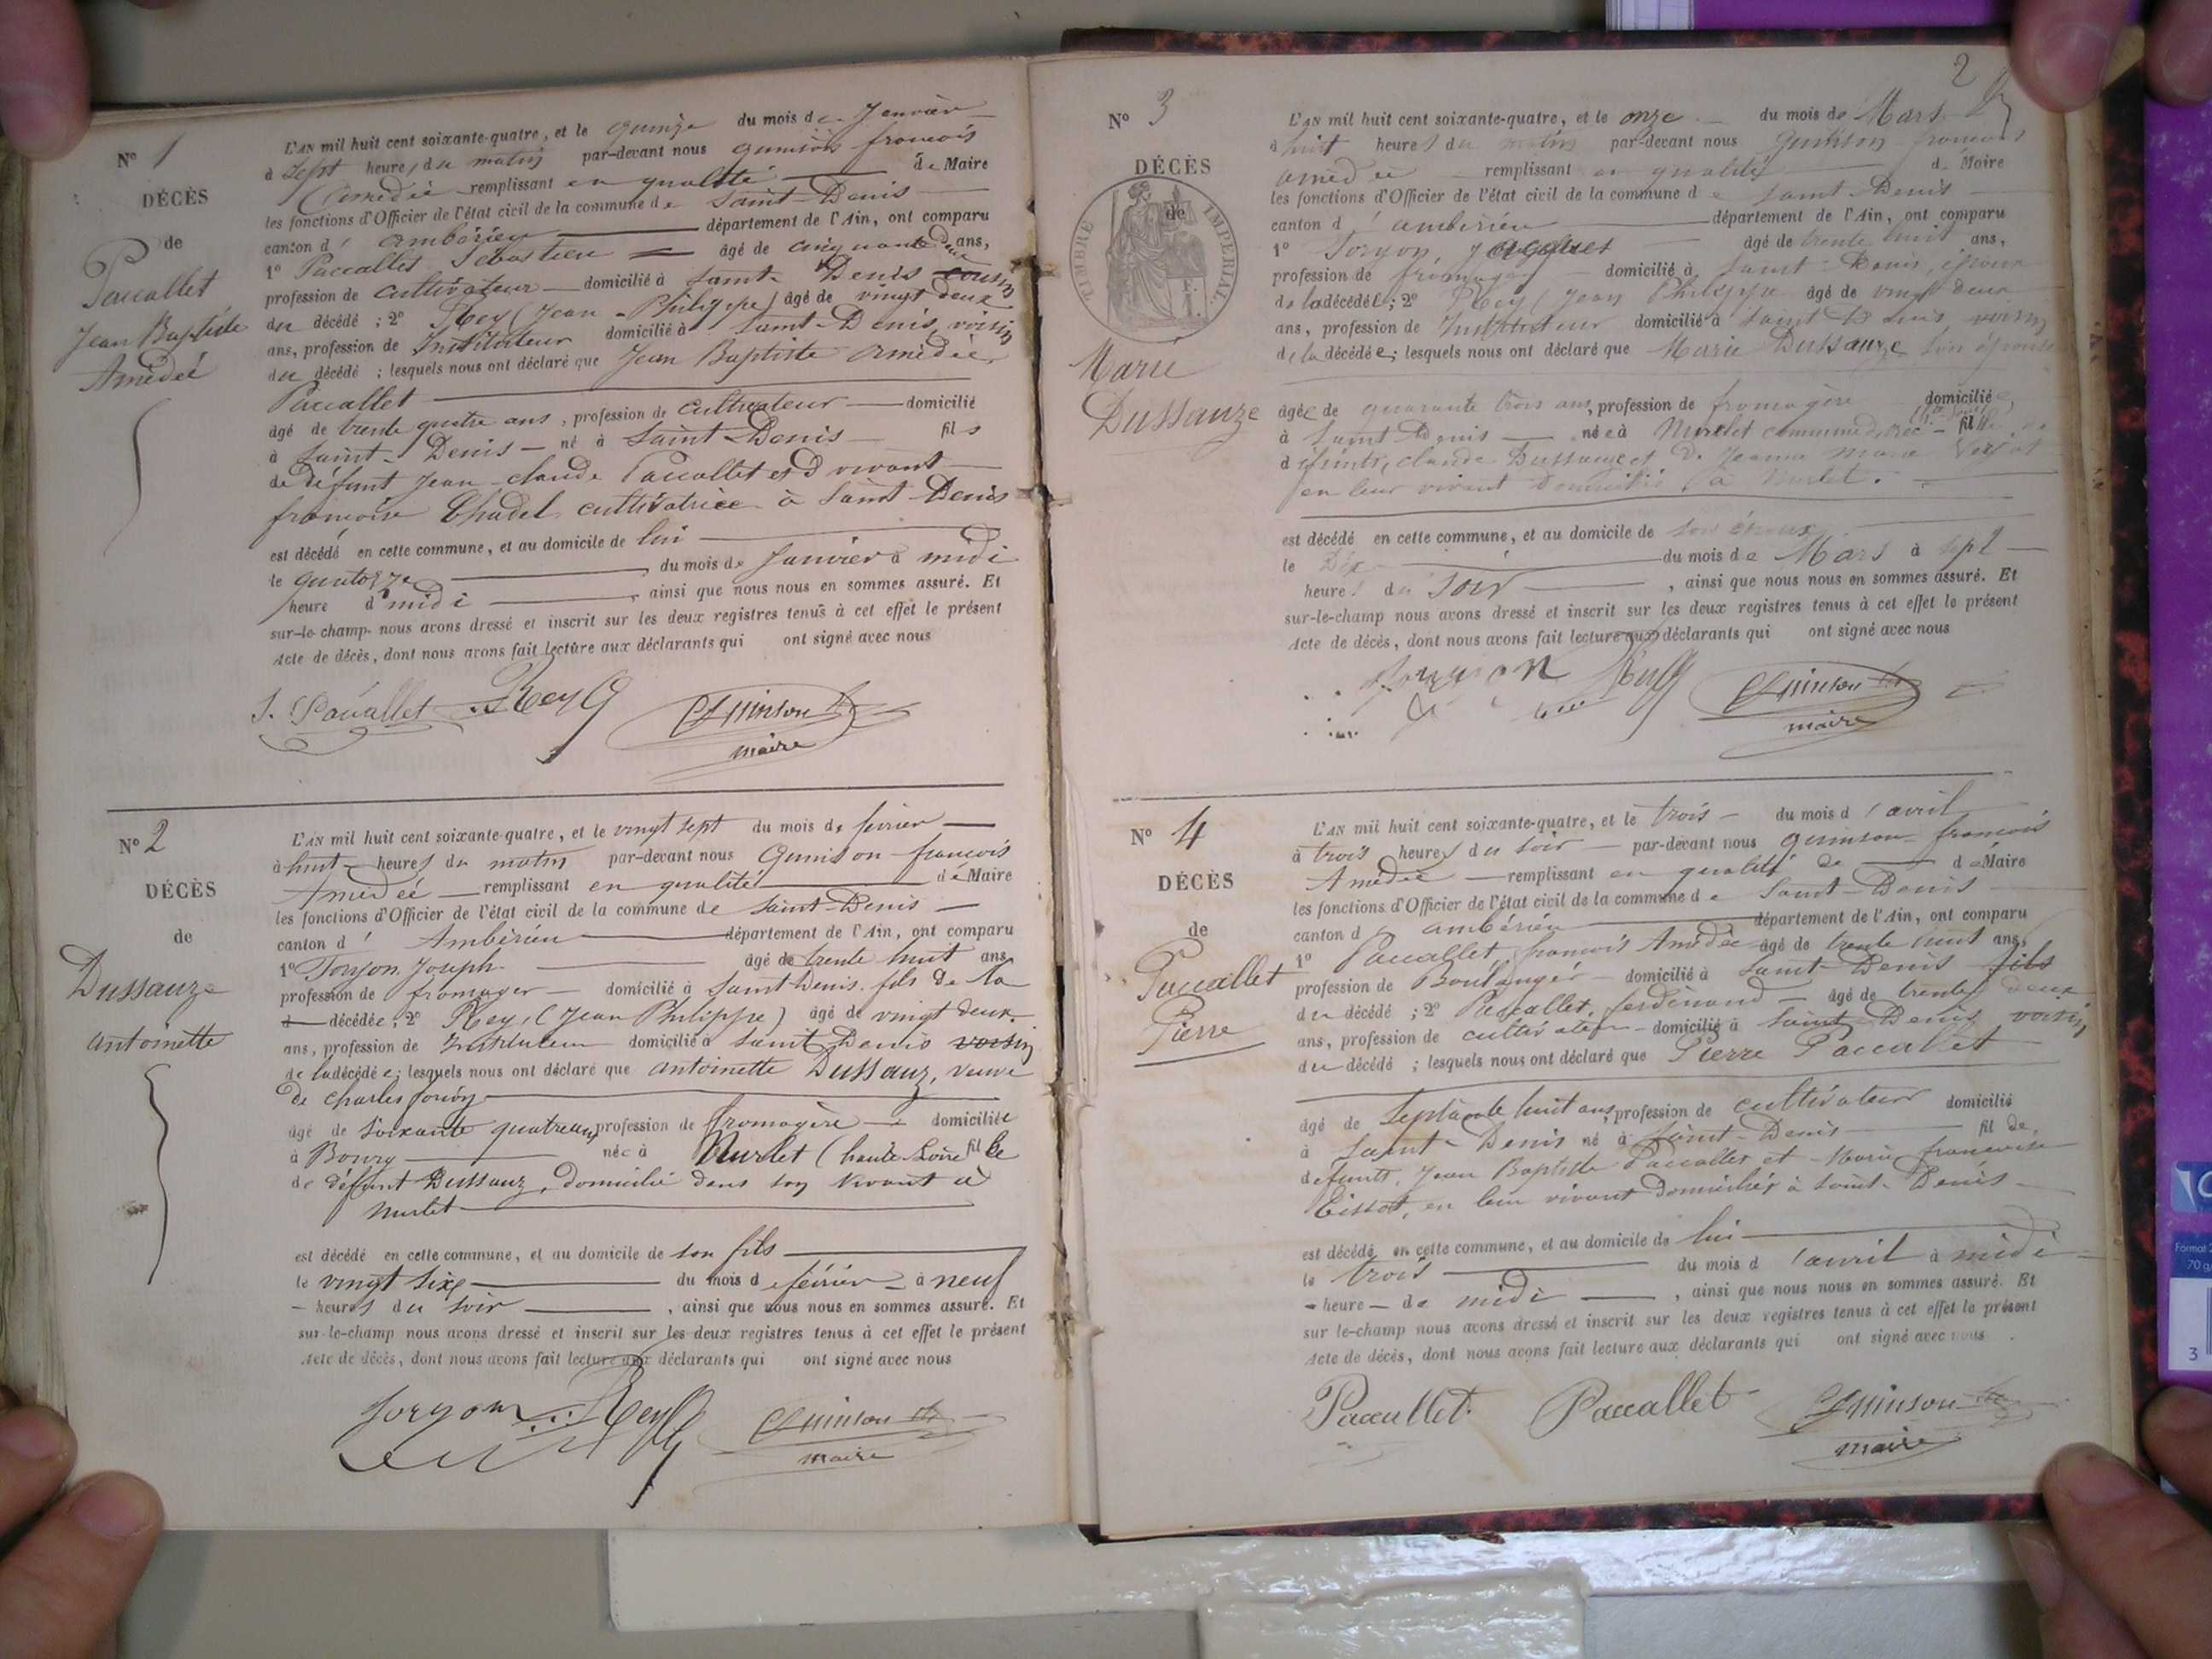 N° 1
DÉCÈS
de
Paccallet
Jean Baptiste
Amédée
L'AN mil huit cent soixante-quatre, et le quinze du mois de Janvier
à sept heures du matin par-devant nous quinson francois
Amédée remplissant en qualité de Maire
les fonctions d'Officier de l'état civil de la commune de Saint-Denis
canton d'ambérieu département de l'Ain, ont comparu
1° Paccallet Sébastien âgé de cinquante deux ans,
profession de cultivateur domicilié à Saint-Denis cousin
du décédé ; 2° Rey (Jean-Philippe) âgé de vingt deux
ans, profession de Instituteur domicilié à Saint-Denis, voisin
du décédé ; lesquels nous ont déclaré que Jean Baptiste Amédée
Paccallet
âgé de trente quatre ans, profession de cultivateur domicilié
à Saint-Denis né à Saint-Denis fils
de défunt Jean-claude Paccallet et d vivant
francoise Chudel cultivatrice à Saint-Denis
est décédé en cette commune, et au domicile de lui
le quatorze du mois de Janvier à midi
heure d midi , ainsi que nous nous en sommes assuré. Et
sur-le-champ nous avons dressé et inscrit sur les deux registres tenus à cet effet le présent
Acte de décès, dont nous avons fait lecture aux déclarants qui ont signé avec nous
S. Paccallet Rey Quinson
maire
N° 2
DÉCÈS
de
Dussauze
antoinette
L'AN mil huit cent soixante-quatre, et le vingt sept du mois de février
à huit heures du matin par-devant nous Quinson francois
Amédée remplissant en qualité de Maire
les fonctions d'Officier de l'état civil de la commune de Saint-Denis
canton d'Ambérieu département de l'Ain, ont comparu
1° Joseph âgé de trente huit ans
profession de fromager domicilié à Saint Denis. fils de la
décédée ; 2° Rey, (Jean Philippe) âgé de vingt deux
ans, profession de Instituteur domicilié à Saint Denis voisin
de la décédée ; lesquels nous ont déclaré que antoinette Dussauz, veuve
de Charles
âgé de soixante quatre ans profession de fromagère domiciliée
à Bourg née à Murlet (haute Loire fille
de défunt Dussauz, domicilié dans son vivant à
Murlet
est décédé en cette commune, et au domicile de son fils
le vingt six du mois de février à neuf
heures du soir , ainsi que nous nous en sommes assuré. Et
sur-le-champ nous avons dressé et inscrit sur les deux registres tenus à cet effet le présent
Acte de décès, dont nous avons fait lecture aux déclarants qui ont signé avec nous
Rey Quinson
maire
2
N° 3
DÉCÈS
de
TIMBRE IMPERIAL
Marie
Dussauze
L'AN mil huit cent soixante-quatre, et le onze du mois de Mars
à huit heures du matin par-devant nous quinson francois
amédée remplissant en qualité de Maire
les fonctions d'Officier de l'état civil de la commune de Saint-Denis
canton d'ambérieu département de l'Ain, ont comparu
1° Jacques âgé de trente huit ans,
profession de fromager domicilié à Saint-Denis, époux
de la décédée ; 2° Rey (Jean Philippe âgé de vingt deux
ans, profession de Instituteur domicilié à Saint Denis voisin
de la décédée ; lesquels nous ont déclaré que Marie Dussauze son épouse
âgée de quarante trois ans, profession de fromagère domiciliée
à Saint Denis née à Murlet commune fille
défunts, claude Dussauze et de Jeanne Marie
en leur vivant domiciliés à Murlet.
est décédé en cette commune, et au domicile de son époux
le Dix du mois de Mars à sept
heures du soir , ainsi que nous nous en sommes assuré. Et
sur-le-champ nous avons dressé et inscrit sur les deux registres tenus à cet effet le présent
Acte de décès, dont nous avons fait lecture aux déclarants qui ont signé avec nous
Rey Quinson
maire
N° 4
DÉCÈS
de
Paccallet
Pierre
L'AN mil huit cent soixante-quatre, et le trois du mois d'avril
à trois heures du soir par-devant nous quinson francois
Amédée remplissant en qualité de de Maire
les fonctions d'Officier de l'état civil de la commune de Saint-Denis
canton d ambérieu département de l'Ain, ont comparu
1° Paccallet, francois Amédée âgé de trente huit ans,
profession de Boulanger domicilié à Saint-Denis fils
du décédé ; 2° Paccallet, ferdinand âgé de trente deux
ans, profession de cultivateur domicilié à Saint Denis voisin
du décédé ; lesquels nous ont déclaré que Pierre Paccallet
âgé de septante huit ans, profession de cultivateur domicilié
à Saint-Denis né à Saint-Denis fil de
défunts. Jean Baptiste Paccallet et Marie francoise
en leur vivant domiciliés à Saint-Denis
est décédé en cette commune, et au domicile de lui
le trois du mois d'avril à midi
heure de midi , ainsi que nous nous en sommes assuré. Et
sur le-champ nous avons dressé et inscrit sur les deux registres tenus à cet effet le présent
Acte de décès, dont nous avons fait lecture aux déclarants qui ont signé avec nous
Paccallet Paccallet Quinson
maire
Format
70 g
3